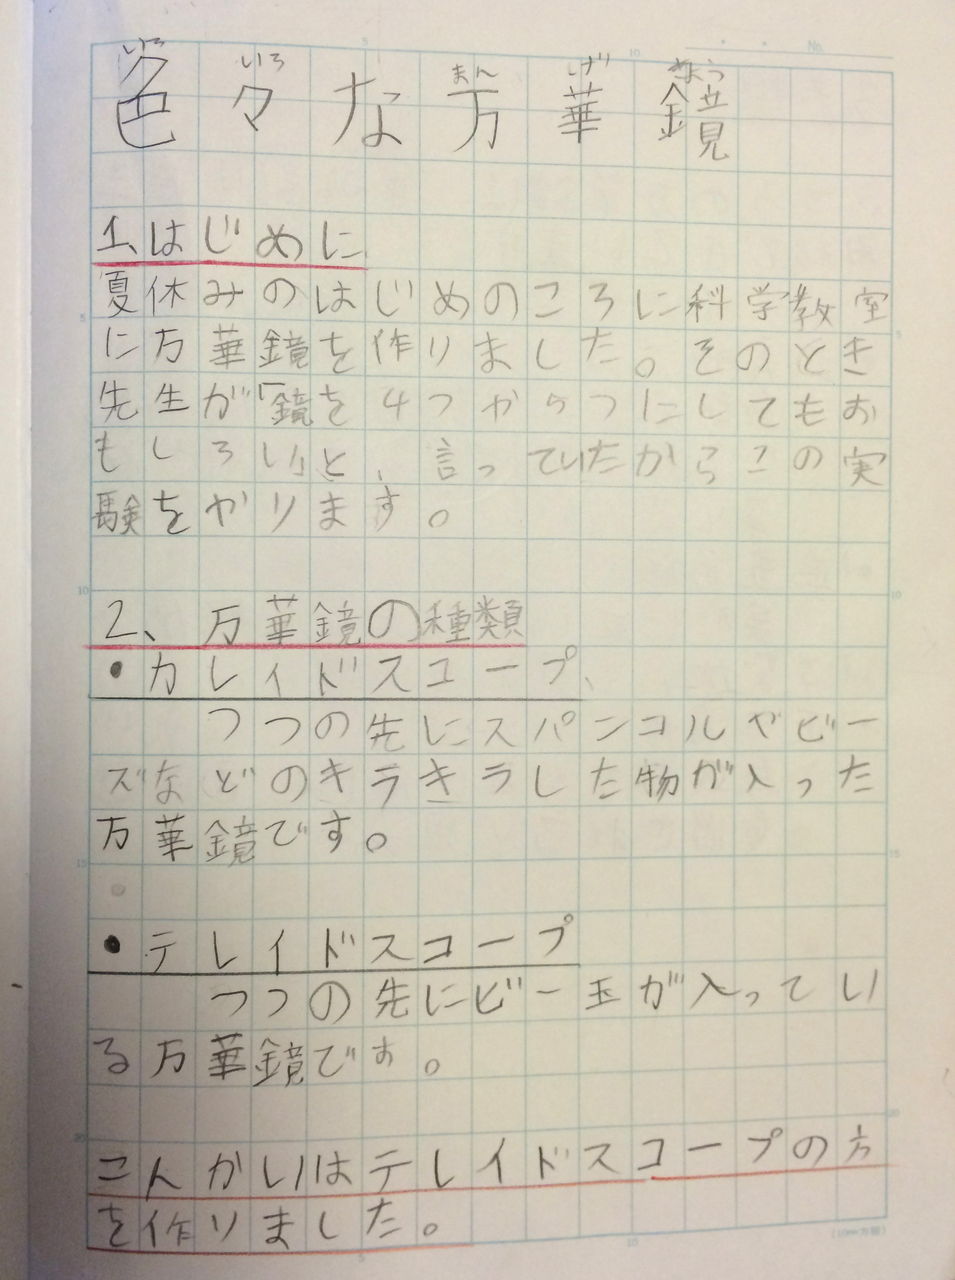 いろ いろ まん げ きょう
色々な万華鏡
1、はじめに
夏休みのはじめのころに科学教室
に万華鏡を作りました。そのとき
先生が「鏡を4つか5つにしてもお
もしろい」と、言っていたからこの実
験をやります。
2、万華鏡の種類
・カレイドスコープ、
つつの先にスパンコルやビー
ズなどのキラきラした物が入った
万華鏡です。
・テレイドスコープ
つつの先にビー玉が入ってい
る万華鏡です。
こんかいはテレイドスコープの方
を作りました。